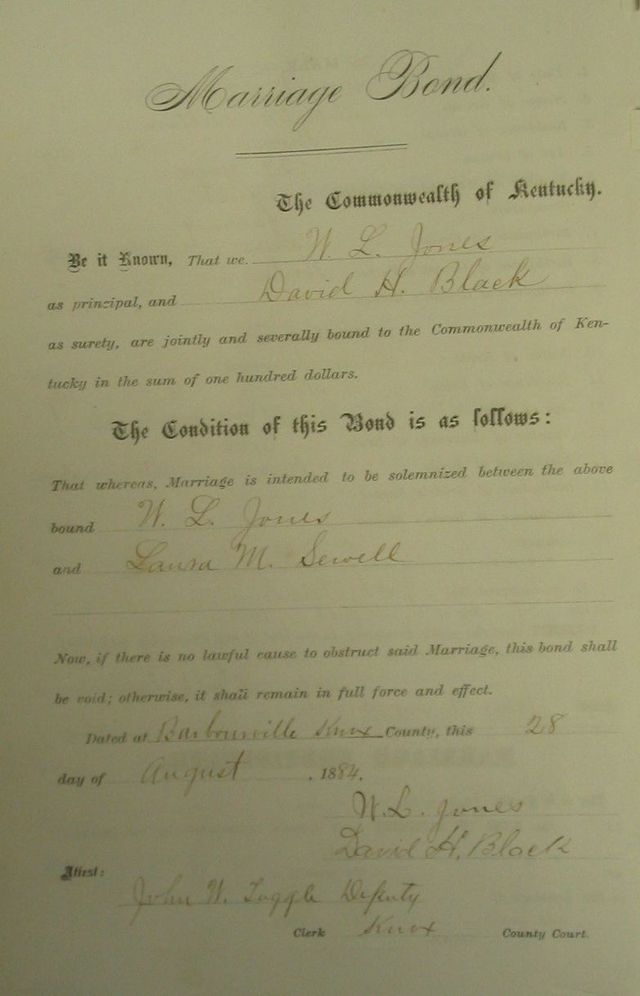 Marriage Bond.
The Commonwealth of Kentucky.
Be it Known, That we W. L. Jones
as principal, and David H. Black
as surety, are jointly and severally bound to the Commonwealth of Ken-
tucky in the sum of one hundred dollars.
The Condition of this Bond is as follows:
That whereas, Marriage is intended to be solemnized between the above
bound W. L. Jones
and Laura M. Sewell
Now, if there is no lawful cause to obstruct said Marriage, this bond shall
be void; otherwise, it shall remain in full force and effect.
Dated at Barbourville Knox County, this 28
day of August, 1884.
W. L. Jones
David H. Black
Attest:
John W. Tuggle Deputy
Clerk Knox County Court.